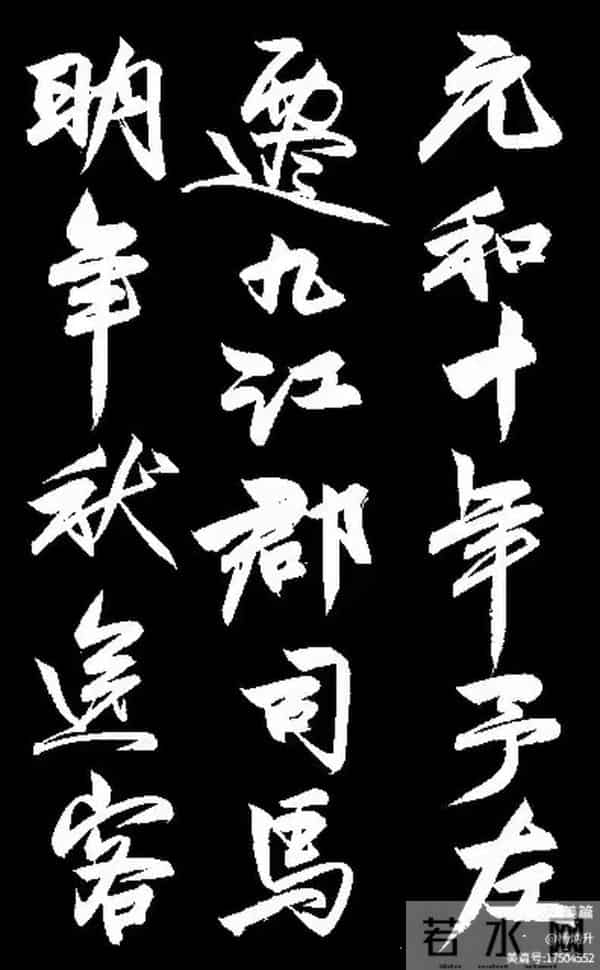 元和十年予左
遷九江郡司馬
明年秋送客
若水网
美篇
美篇号:17504552